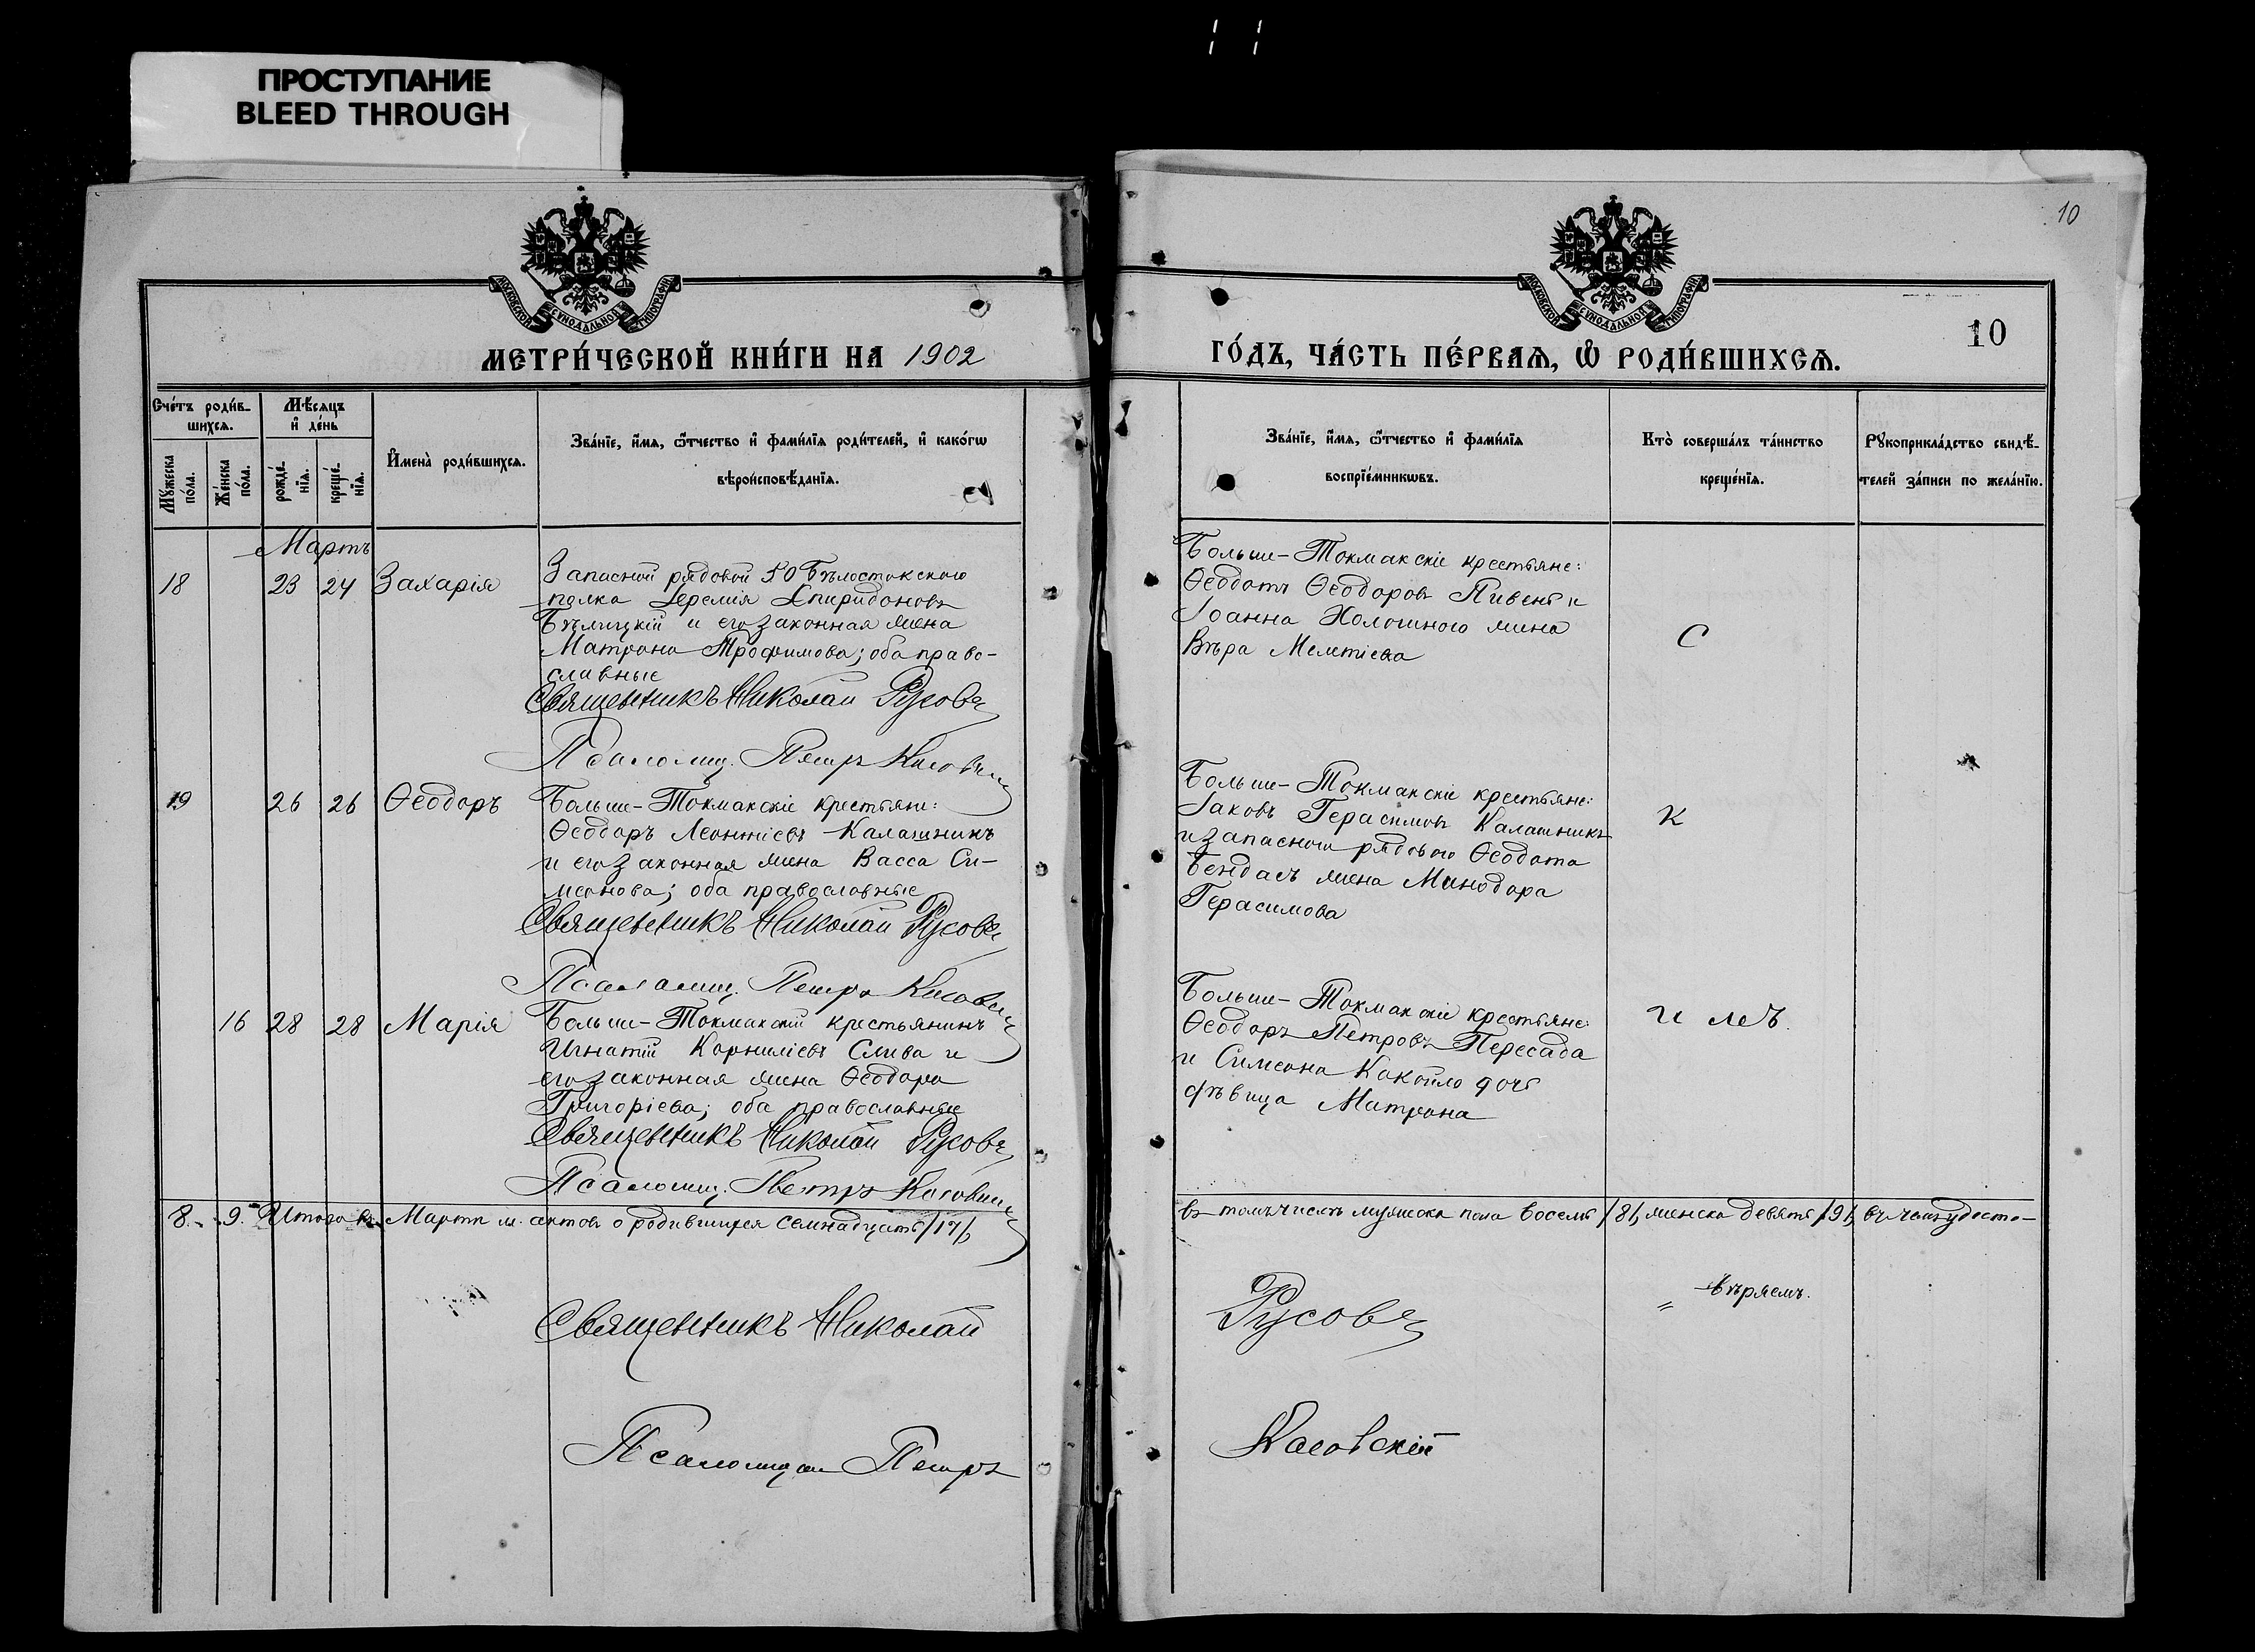 ПРОСТУПАНИЕ
BLEED THROUGH
10
МОСКОВСКОЙ СѴНОДАЛЬНОЙ ТИПОГРАФІИ
МОСКОВСКОЙ СѴНОДАЛЬНОЙ ТИПОГРАФІИ
10
МЕТРИ́ЧЕСКОЙ КНИ́ГИ НА 1902
ГО́ДЪ, ЧА́СТЬ ПЕ́РВАѦ, Ѽ РОДИ́ВШИХСѦ.
Сче́тъ роди́в-
шихсѧ.
Мѣ́сѧцъ
и҆ де́нь
Мꙋ́жеска
по́ла.
Же́нска
по́ла.
рожде́-
нїѧ.
креще́-
нїѧ.
И҆мена̀ роди́вшихсѧ.
Зва́нїе, и҆́мѧ, ѻ҆́тчество и҆ фами́лїѧ роди́телей, и҆ како́гѡ
вѣроисповѣ́данїѧ.
Зва́нїе, и҆́мѧ, ѻ҆́тчество и҆ фами́лїѧ
воспрїе́мникѡвъ.
Кто̀ соверша́лъ та́инство
креще́нїѧ.
Рꙋкоприкла́дство свидѣ́-
телей за́писи по жела́нїю.
Мартъ
18 23 24 Захарія
Запасной рядовой 50 Бѣлостокского
полка Іеремія Спиридоновъ
Бѣлицкій и его законная жена
Матрона Трофимова; оба право-
славные
Священникъ Николай Русовъ
Псаломщ. Петръ
Больше-Токмакскіе крестьяне:
Ѳеодотъ Ѳеодоровъ Пивень и
Іоанна Холошного жена
Вѣра Мелетіева
С
19 26 26 Ѳеодоръ
Больше-Токмакскіе крестьяне:
Ѳеодоръ Леонтіевъ Калашникъ
и его законная жена Васса Си-
меонова; оба православные
Священникъ Николай Русовъ
Псаломщ. Петръ
Больше-Токмакскіе крестьяне:
Іаковъ Герасимовъ Калашникъ
и запасного рядового Ѳеодота
Бендасъ жена Минодора
Герасимова
К
16 28 28 Марія
Больше-Токмакскій крестьянинъ
Игнатій Корниліевъ Слива и
его законная жена Ѳеодора
Григоріева; оба православные
Священникъ Николай Русовъ
Псаломщ. Петръ
Больше-Токмакскіе крестьяне:
Ѳеодоръ Петровъ Пересада
и Симеона Кокойло дочь
дѣвица Матрона
И ЛЕЪ.
8. 9. Итого въ Мартѣ м. актовъ о родившихся семнадцать /17/,
въ томъ числѣ мужеска пола восемь /8/, женска девять /9/, въ чемъ удосто-
вѣряемъ.
Священникъ Николай
Русовъ
Псаломщикъ Петръ
Касовскій